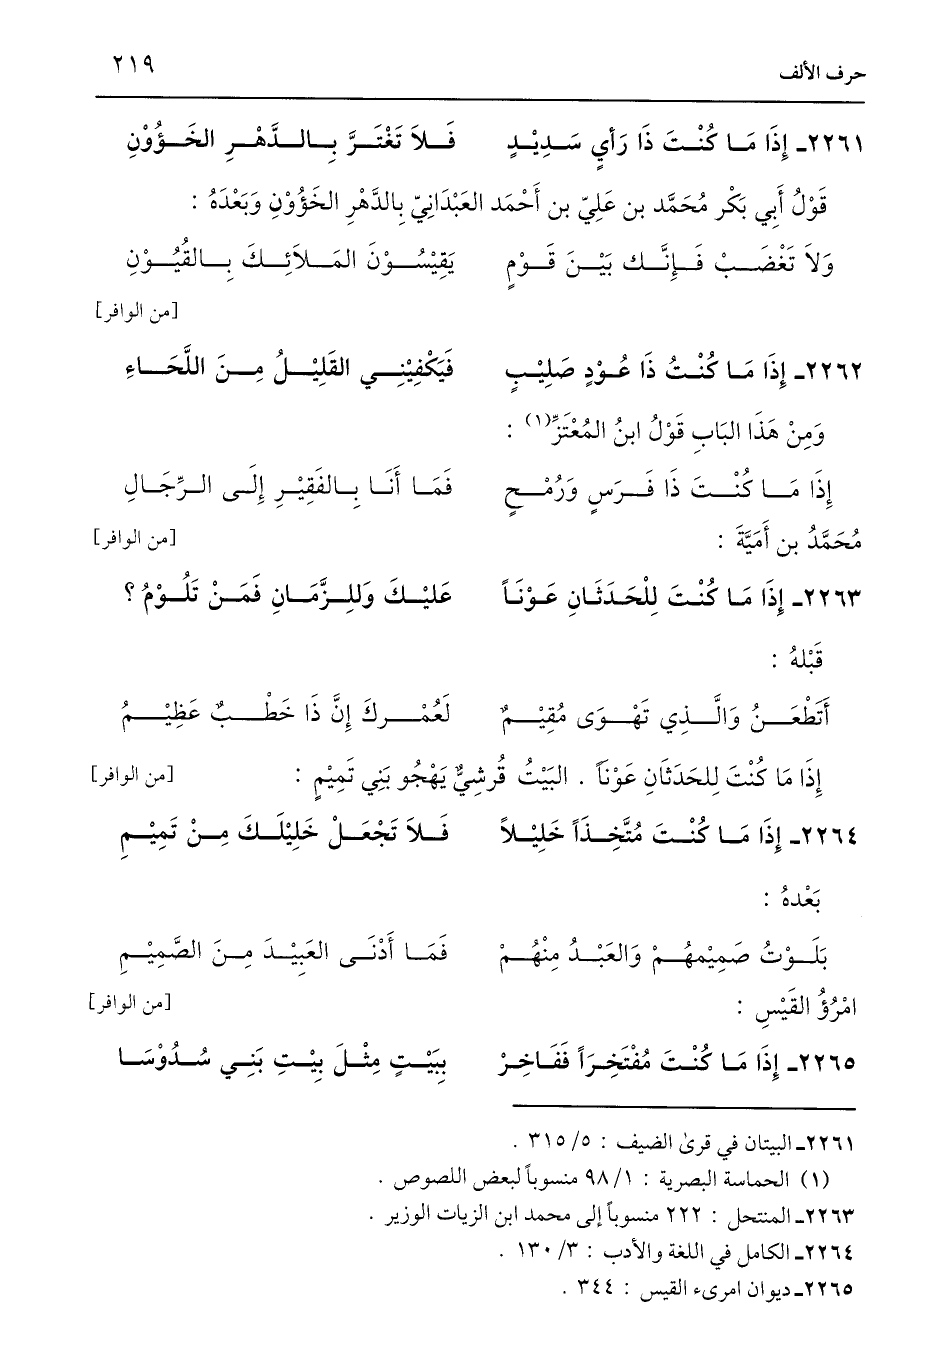 حرف الألف ٢١٩
٢٢٦١ـ إِذَا مَـا كُنْـتَ ذَا رَأيٍ سَـدِيْـدٍ فَـلاَ تَغْتَـرَّ بِـالـدَّهْـرِ الخَـؤُوْنِ
قَوْلُ أَبِي بَكْر مُحَمَّد بن عَلِيّ بن أَحْمَد العَبْدَانِيّ بِالدَّهْرِ الخَؤُوْنِ وَبَعْدَهُ :
وَلاَ تَغْضَـبْ فَـإِنَّـكَ بَيْـنَ قَـوْمٍ يَقِيْسُـوْنَ المَـلاَئِـكَ بِـالقُيُـوْنِ
[من الوافر]
٢٢٦٢ـ إِذَا مَـا كُنْـتُ ذَا عُـوْدٍ صَلِيْـبٍ فَيَكْفِيْنِـي القَلِيْـلُ مِـنَ اللَّحَـاءِ
وَمِنْ هَذَا البَابِ قَوْلُ ابنُ المُعْتَزِّ(١) :
إِذَا مَـا كُنْـتَ ذَا فَـرَسٍ وَرُمْـحٍ فَمَـا أَنَـا بِـالفَقِيْـرِ إِلَـى الـرِّجَـالِ
مُحَمَّدُ بن أُمَيَّةَ : [من الوافر]
٢٢٦٣ـ إِذَا مَـا كُنْـتَ لِلْحَدَثَـانِ عَـوْنَـاً عَلَيْـكَ وَلِلـزَّمَـانِ فَمَـنْ تَلُـوْمُ ؟
قَبْلهُ :
أَتَظْعَـنُ وَالَّـذِي تَهْـوَى مُقِيْـمٌ لَعُمْـركَ إِنَّ ذَا خَطْـبٌ عَظِيْـمُ
إِذَا مَا كُنْتَ لِلحَدَثَانِ عَوْنَاً . البَيْتُ قُرشِيٌّ يَهْجُو بَنِي تَمِيْمٍ : [من الوافر]
٢٢٦٤ـ إِذَا مَـا كُنْـتَ مُتَّخِـذَاً خَلِيْـلاً فَـلاَ تَجْعَـلْ خَلِيْلَـكَ مِـنْ تَمِيْـمِ
بَعْدهُ :
بَلَـوْتُ صَمِيمهُـمْ وَالعَبْـدُ مِنْهُـمْ فَمَـا أَدْنَـى العَبِيْـدَ مِـنَ الصَّمِيْـمِ
امْرُؤُ القَيْسِ : [من الوافر]
٢٢٦٥ـ إِذَا مَـا كُنْـتَ مُفْتَخِـرَاً فَفَـاخِـرْ بِبَيْـتٍ مِثْـلَ بِيْـتِ بَنِـي سُـدُوْسَـا
٢٢٦١ـ البيتان في قرى الضيف : ٥/ ٣١٥ .
(١) الحماسة البصرية : ١/ ٩٨ منسوباً لبعض اللصوص .
٢٢٦٣ـ المنتحل : ٢٢٢ منسوباً إلى محمد ابن الزيات الوزير .
٢٢٦٤ـ الكامل في اللغة والأدب : ٣/ ١٣٠ .
٢٢٦٥ـ ديوان امرىء القيس : ٣٤٤ .